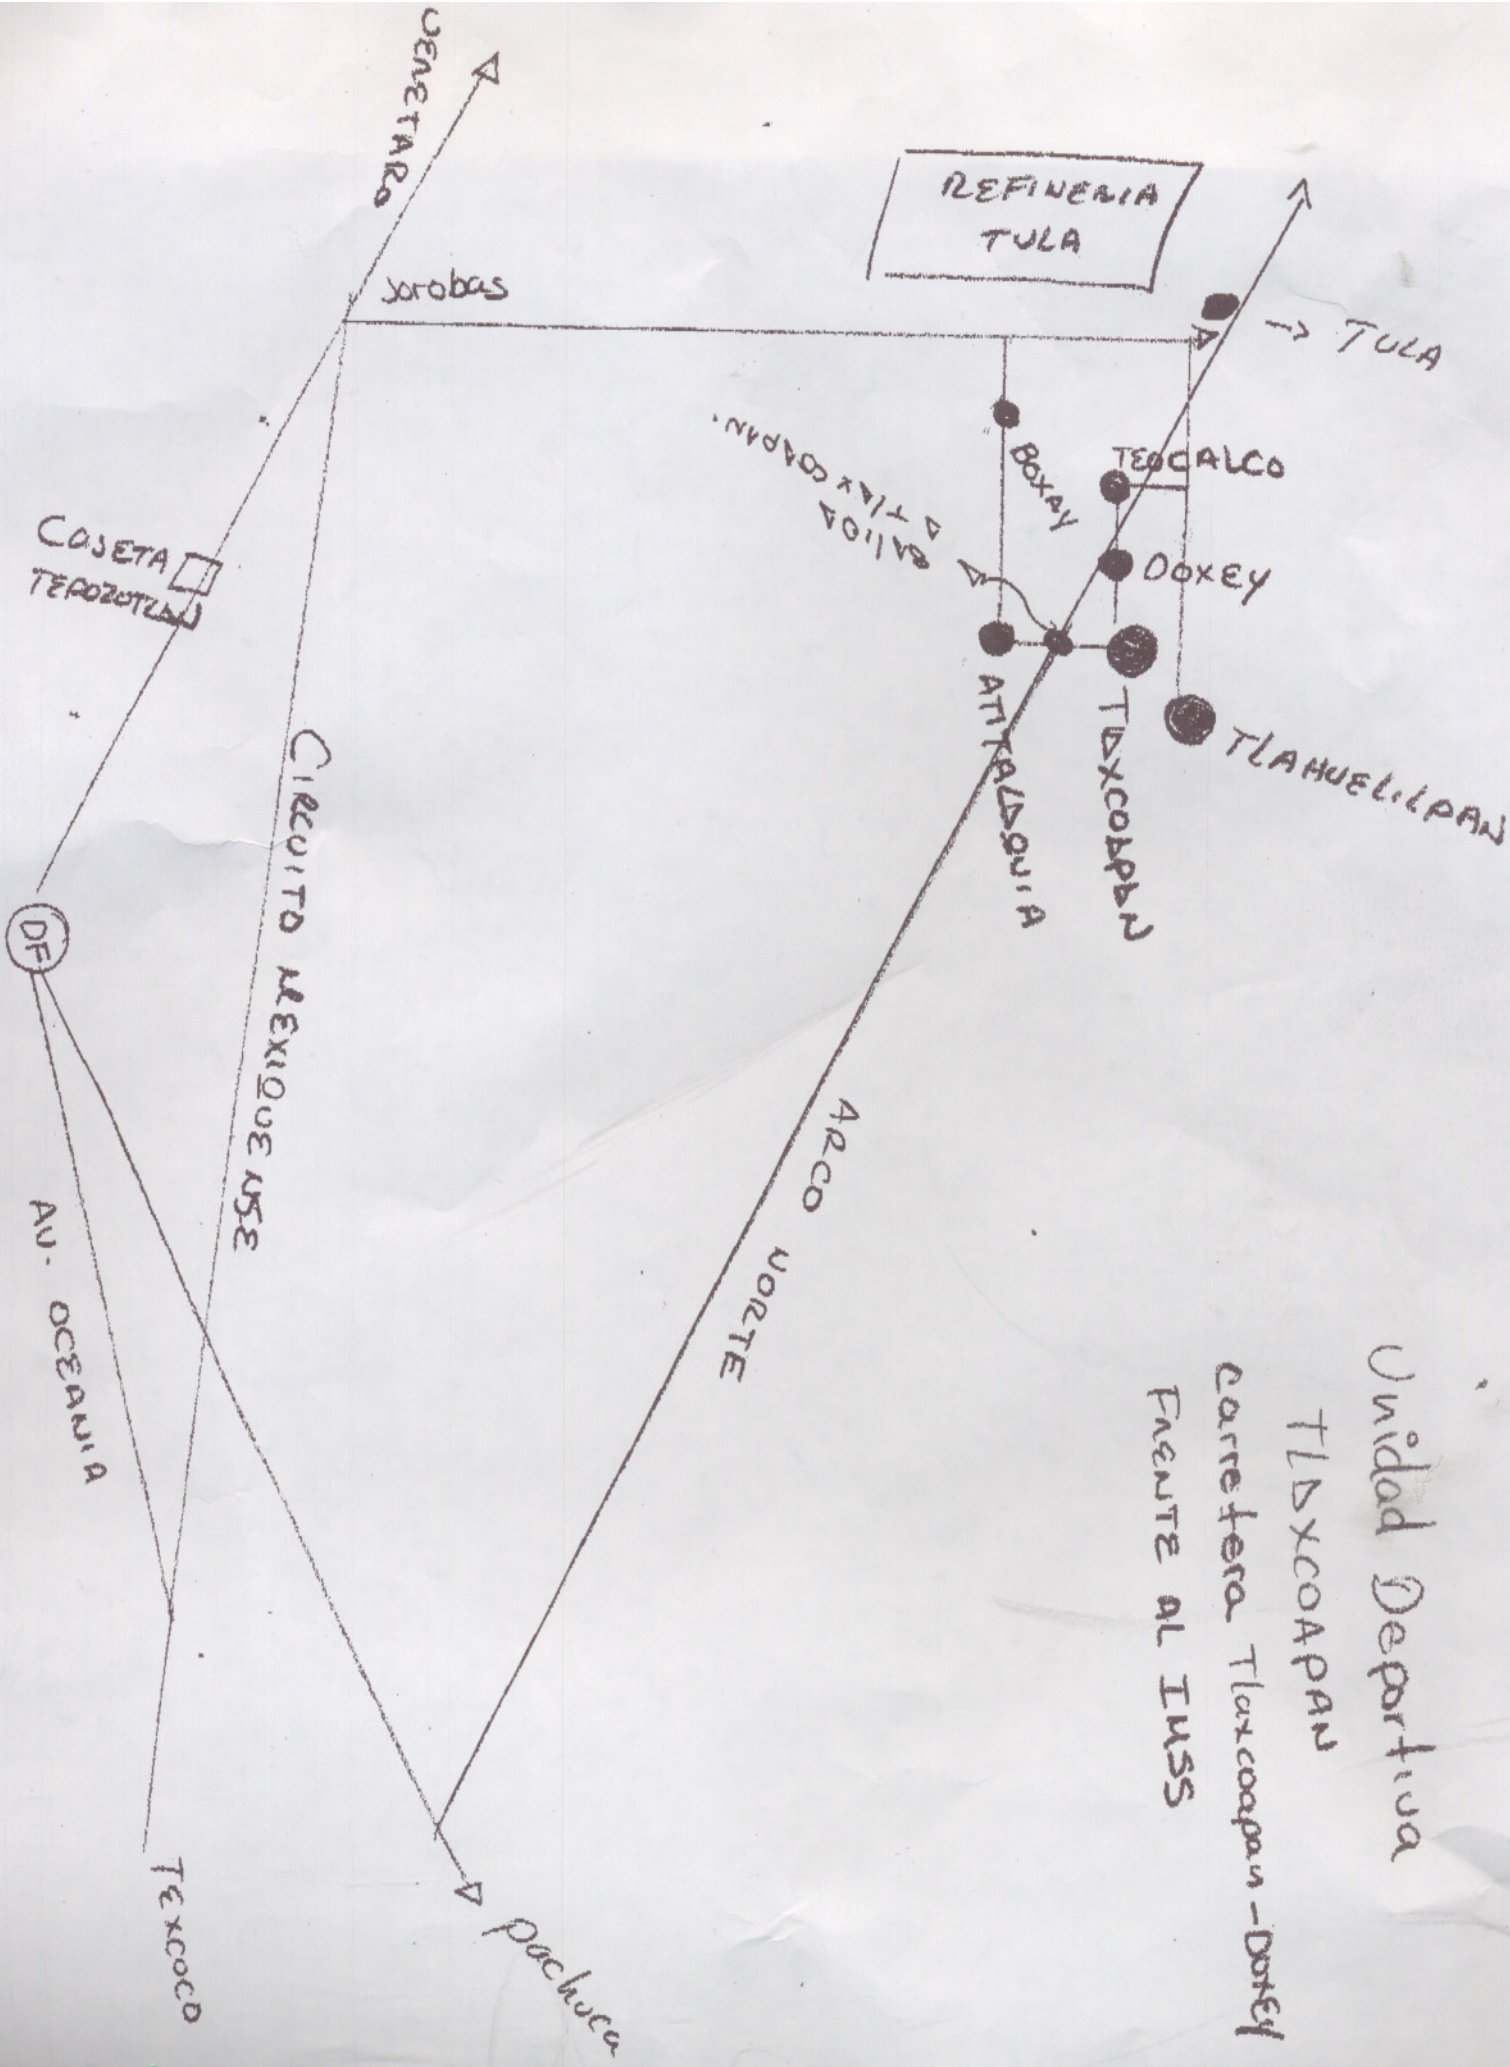 Unidad Deportiva
TLAXCOAPAN
carretera Tlaxcoapan-DOXEY
FRENTE AL IMSS
UERETARO
REFINERIA
TULA
Jorobas
-> TULA
BOXAY
TEOCALCO
DOXEY
SALIDA
A TLAXCOAPAN.
ATITALAQUIA
TLAXCOAPAN
TLAHUELILPAN
CASETA
TEPOZOTLAN
CIRCUITO MEXIQUENSE
DF
ARCO NORTE
AV. OCEANIA
TEXCOCO
pachuca